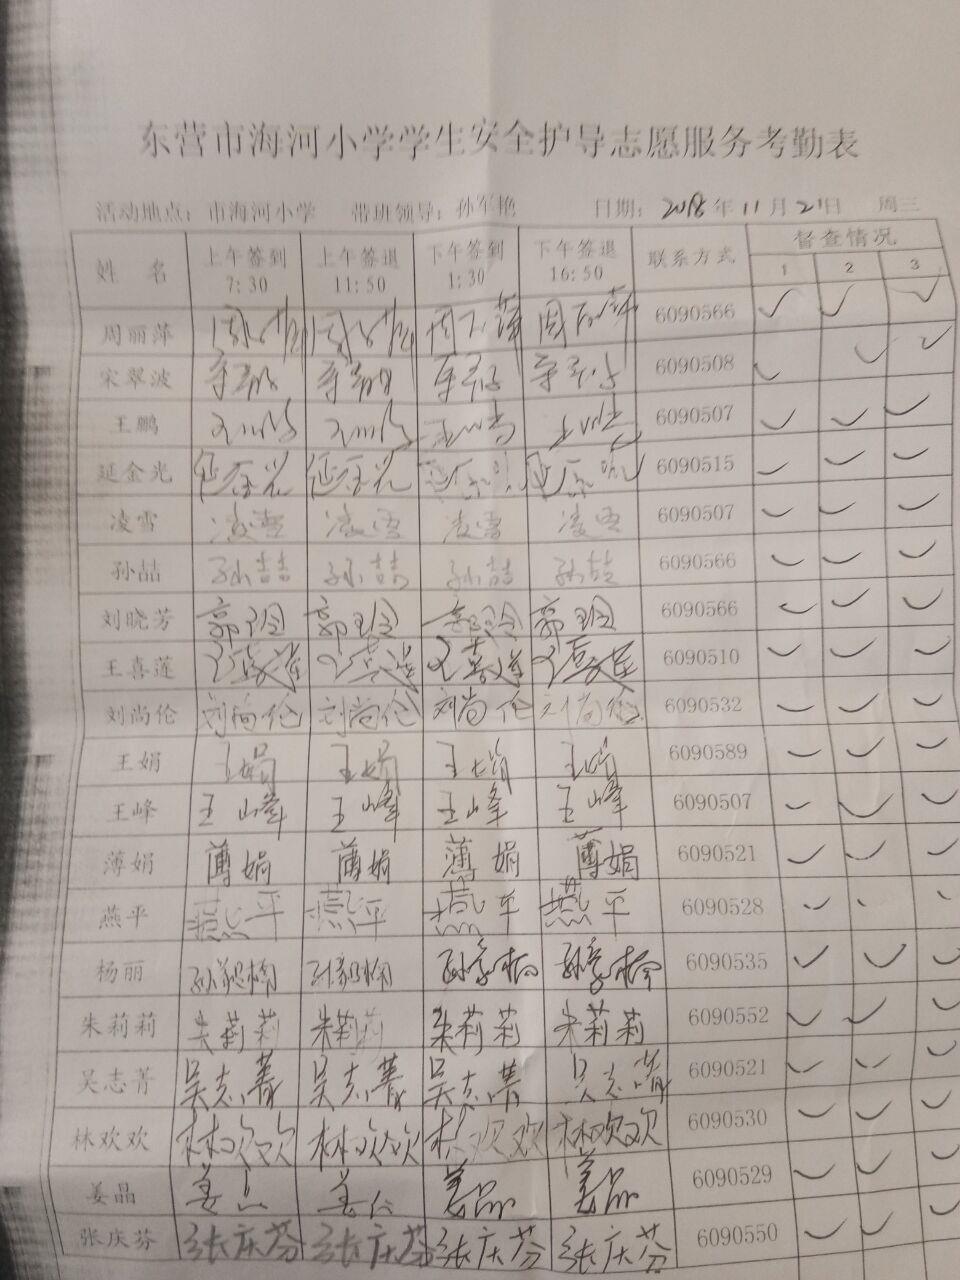 东营市海河小学学生安全护导志愿服务考勤表
活动地点：市海河小学 带班领导：孙军艳 日期：2018年11月21日 周三
姓 名 上午签到 7:30 上午签退 11:50 下午签到 1:30 下午签退 16:50 联系方式 督查情况
1 2 3
周丽萍 6090566 ✓ ✓ ✓
宋翠波 6090508 ✓ ✓ ✓
王鹏 6090507 ✓ ✓ ✓
延金光 延金光 延金光 6090515 ✓ ✓ ✓
凌雪 凌雪 凌雪 凌雪 凌雪 6090507 ✓ ✓ ✓
孙喆 孙喆 孙喆 孙喆 孙喆 6090566 ✓ ✓ ✓
刘晓芳 郭玲 郭玲 郭玲 郭玲 6090566 ✓ ✓ ✓
王喜莲 王喜莲 王喜莲 王喜莲 王喜莲 6090510 ✓ ✓ ✓
刘尚伦 刘尚伦 刘尚伦 刘尚伦 刘尚伦 6090532 ✓ ✓ ✓
王娟 王娟 王娟 王娟 王娟 6090589 ✓ ✓ ✓
王峰 王峰 王峰 王峰 王峰 6090507 ✓ ✓ ✓
薄娟 薄娟 薄娟 薄娟 薄娟 6090521 ✓ ✓ ✓
燕平 燕平 燕平 燕平 燕平 6090528 ✓ ✓ ✓
杨丽 6090535 ✓ ✓ ✓
朱莉莉 朱莉莉 朱莉莉 朱莉莉 朱莉莉 6090552 ✓ ✓ ✓
吴志菁 吴志菁 吴志菁 吴志菁 吴志菁 6090521 ✓ ✓ ✓
林欢欢 林欢欢 林欢欢 林欢欢 林欢欢 6090530 ✓ ✓ ✓
姜晶 姜晶 姜晶 姜晶 姜晶 6090529 ✓ ✓ ✓
张庆芬 张庆芬 张庆芬 张庆芬 张庆芬 6090550 ✓ ✓ ✓